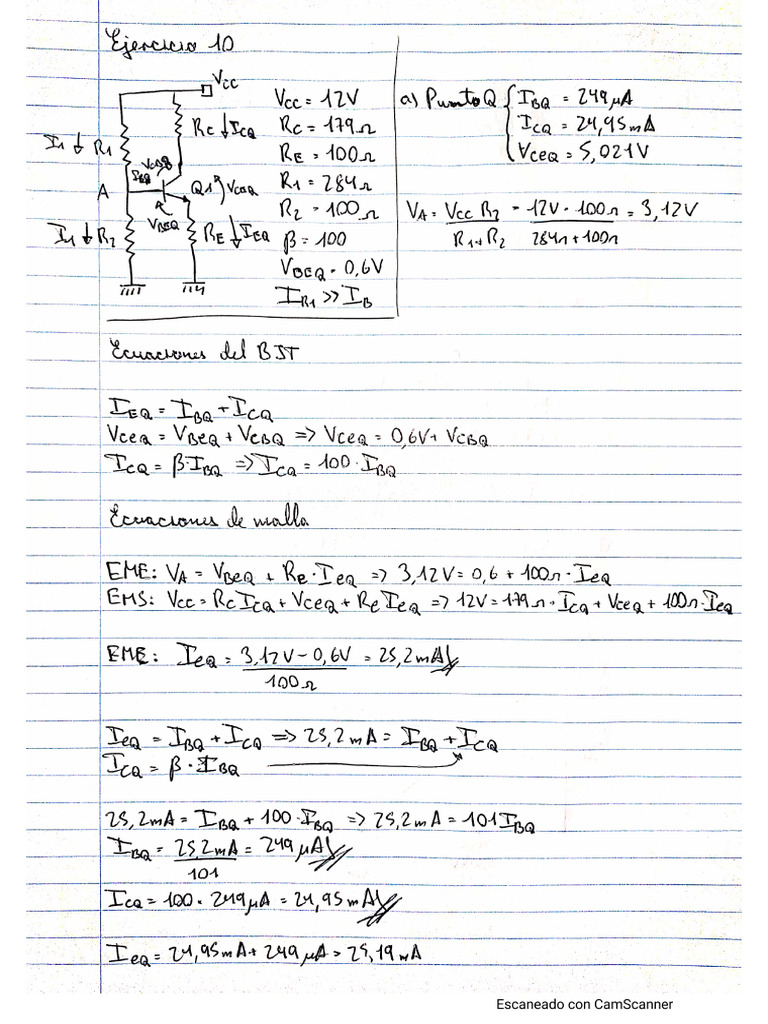 Ejercicio 10
Vcc
I1 ↓ R1
RC ↓ ICQ
VCBQ
IBQ
A
Q1
VCEQ
VBEQ
I1 ↓ R2
RE ↓ IEQ
Vcc = 12V
Rc = 179Ω
RE = 100Ω
R1 = 284Ω
R2 = 100Ω
β = 100
VBEQ = 0,6V
IR1 >> IB
a) Punto Q { IBQ = 249μA
ICQ = 24,95mA
VCEQ = 5,021V
VA = Vcc R2 / R1+R2 = 12V · 100Ω / 284Ω+100Ω = 3,12V
Ecuaciones del BJT
IEQ = IBQ + ICQ
VCEQ = VBEQ + VCBQ => VCEQ = 0,6V + VCBQ
ICQ = β·IBQ => ICQ = 100 · IBQ
Ecuaciones de malla
EME: VA = VBEQ + RE · IEQ => 3,12V = 0,6 + 100Ω · IEQ
EMS: Vcc = Rc ICQ + VCEQ + RE IEQ => 12V = 179Ω · ICQ + VCEQ + 100Ω · IEQ
EME: IEQ = 3,12V - 0,6V / 100Ω = 25,2mA
IEQ = IBQ + ICQ => 25,2mA = IBQ + ICQ
ICQ = β · IBQ
25,2mA = IBQ + 100 · IBQ => 25,2mA = 101 IBQ
IBQ = 25,2mA / 101 = 249μA
ICQ = 100 · 249μA = 24,95mA
IEQ = 24,95mA + 249μA = 25,19mA
Escaneado con CamScanner